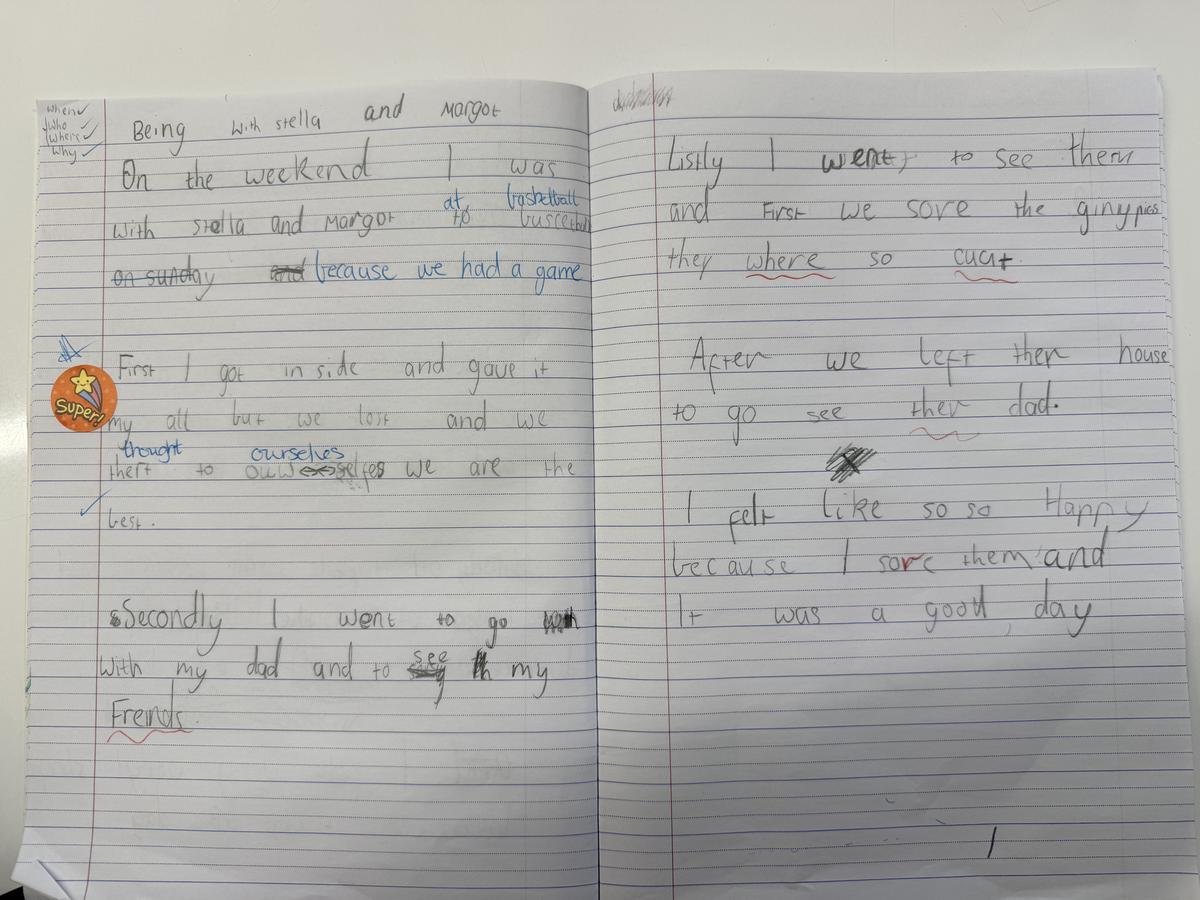 When✓
Who ✓
Where✓
Why ✓
Being with stella and Margot
On the weekend I was
at basketball
with stella and Margot to
on sunday and because we had a game
First I got in side and gave it
Super!
my all but we lost and we
thought ourselves
thert to we are the
best.
Secondly I went to go
with my dad and to see my
Freinds.
Listly I went to see them
and First we sore the ginypies
they where so cuat.
After we left ther house
to go see ther dad.
I felt like so so Happy
because I sore them and
It was a good day